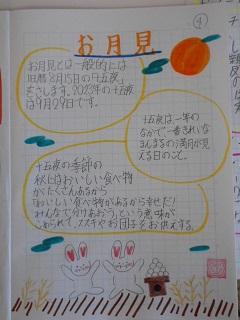 ④
お月見
お月見とは一般的には
旧暦8月15日の「十五夜」
をさします。2023年の十五夜
は9月29日です。
十五夜は一年の
なかで一番きれいな
まんまるの満月が
見える日のこと。
十五夜の季節の
秋にはおいしい食べ物
がたくさんあるから
「おいしい食べ物があるから幸せだ!
みんなで分けあおう」という意味が
こめられて、ススキやお団子をお供えする。